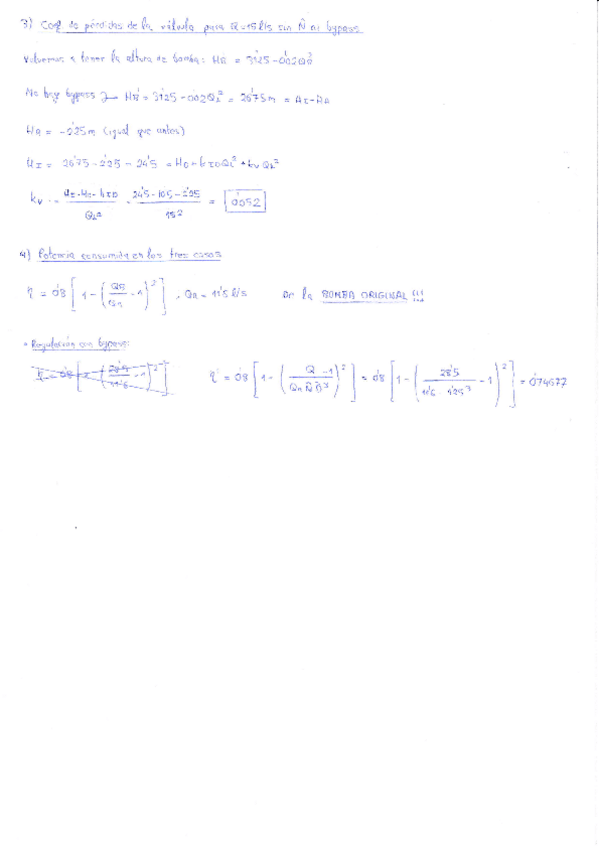 3) Coef de pérdidas de la válvula para Q=15 l/s sin Ñ ni bypass
Volvemos a tomar la altura de bomba: HB = 31'25 - 0'02QB²
No hay bypass → HB = 31'25 - 0'02QI² = 26'75m = HI - HA
HA = -2'25m (igual que antes)
HI = 26'75 - 2'25 = 24'5 = H0 + kIDQI² + kvQI²
kv = (HI - H0 - hID)/QI² = (24'5 - 10'5 - 2'25)/15² = 0'052
4) Potencia consumida en los tres casos
η = 0'8 [1 - (QB/Qn - 1)²], Qn = 11'6 l/s DE la BOMBA ORIGINAL (!)
• Regulación con bypass:
η' = 0'8 [1 - (Q/(Qn Ñ D̃³) - 1)²] = 0'8 [1 - (28'5/(11'6 · 1'25³) - 1)²] = 0'74677